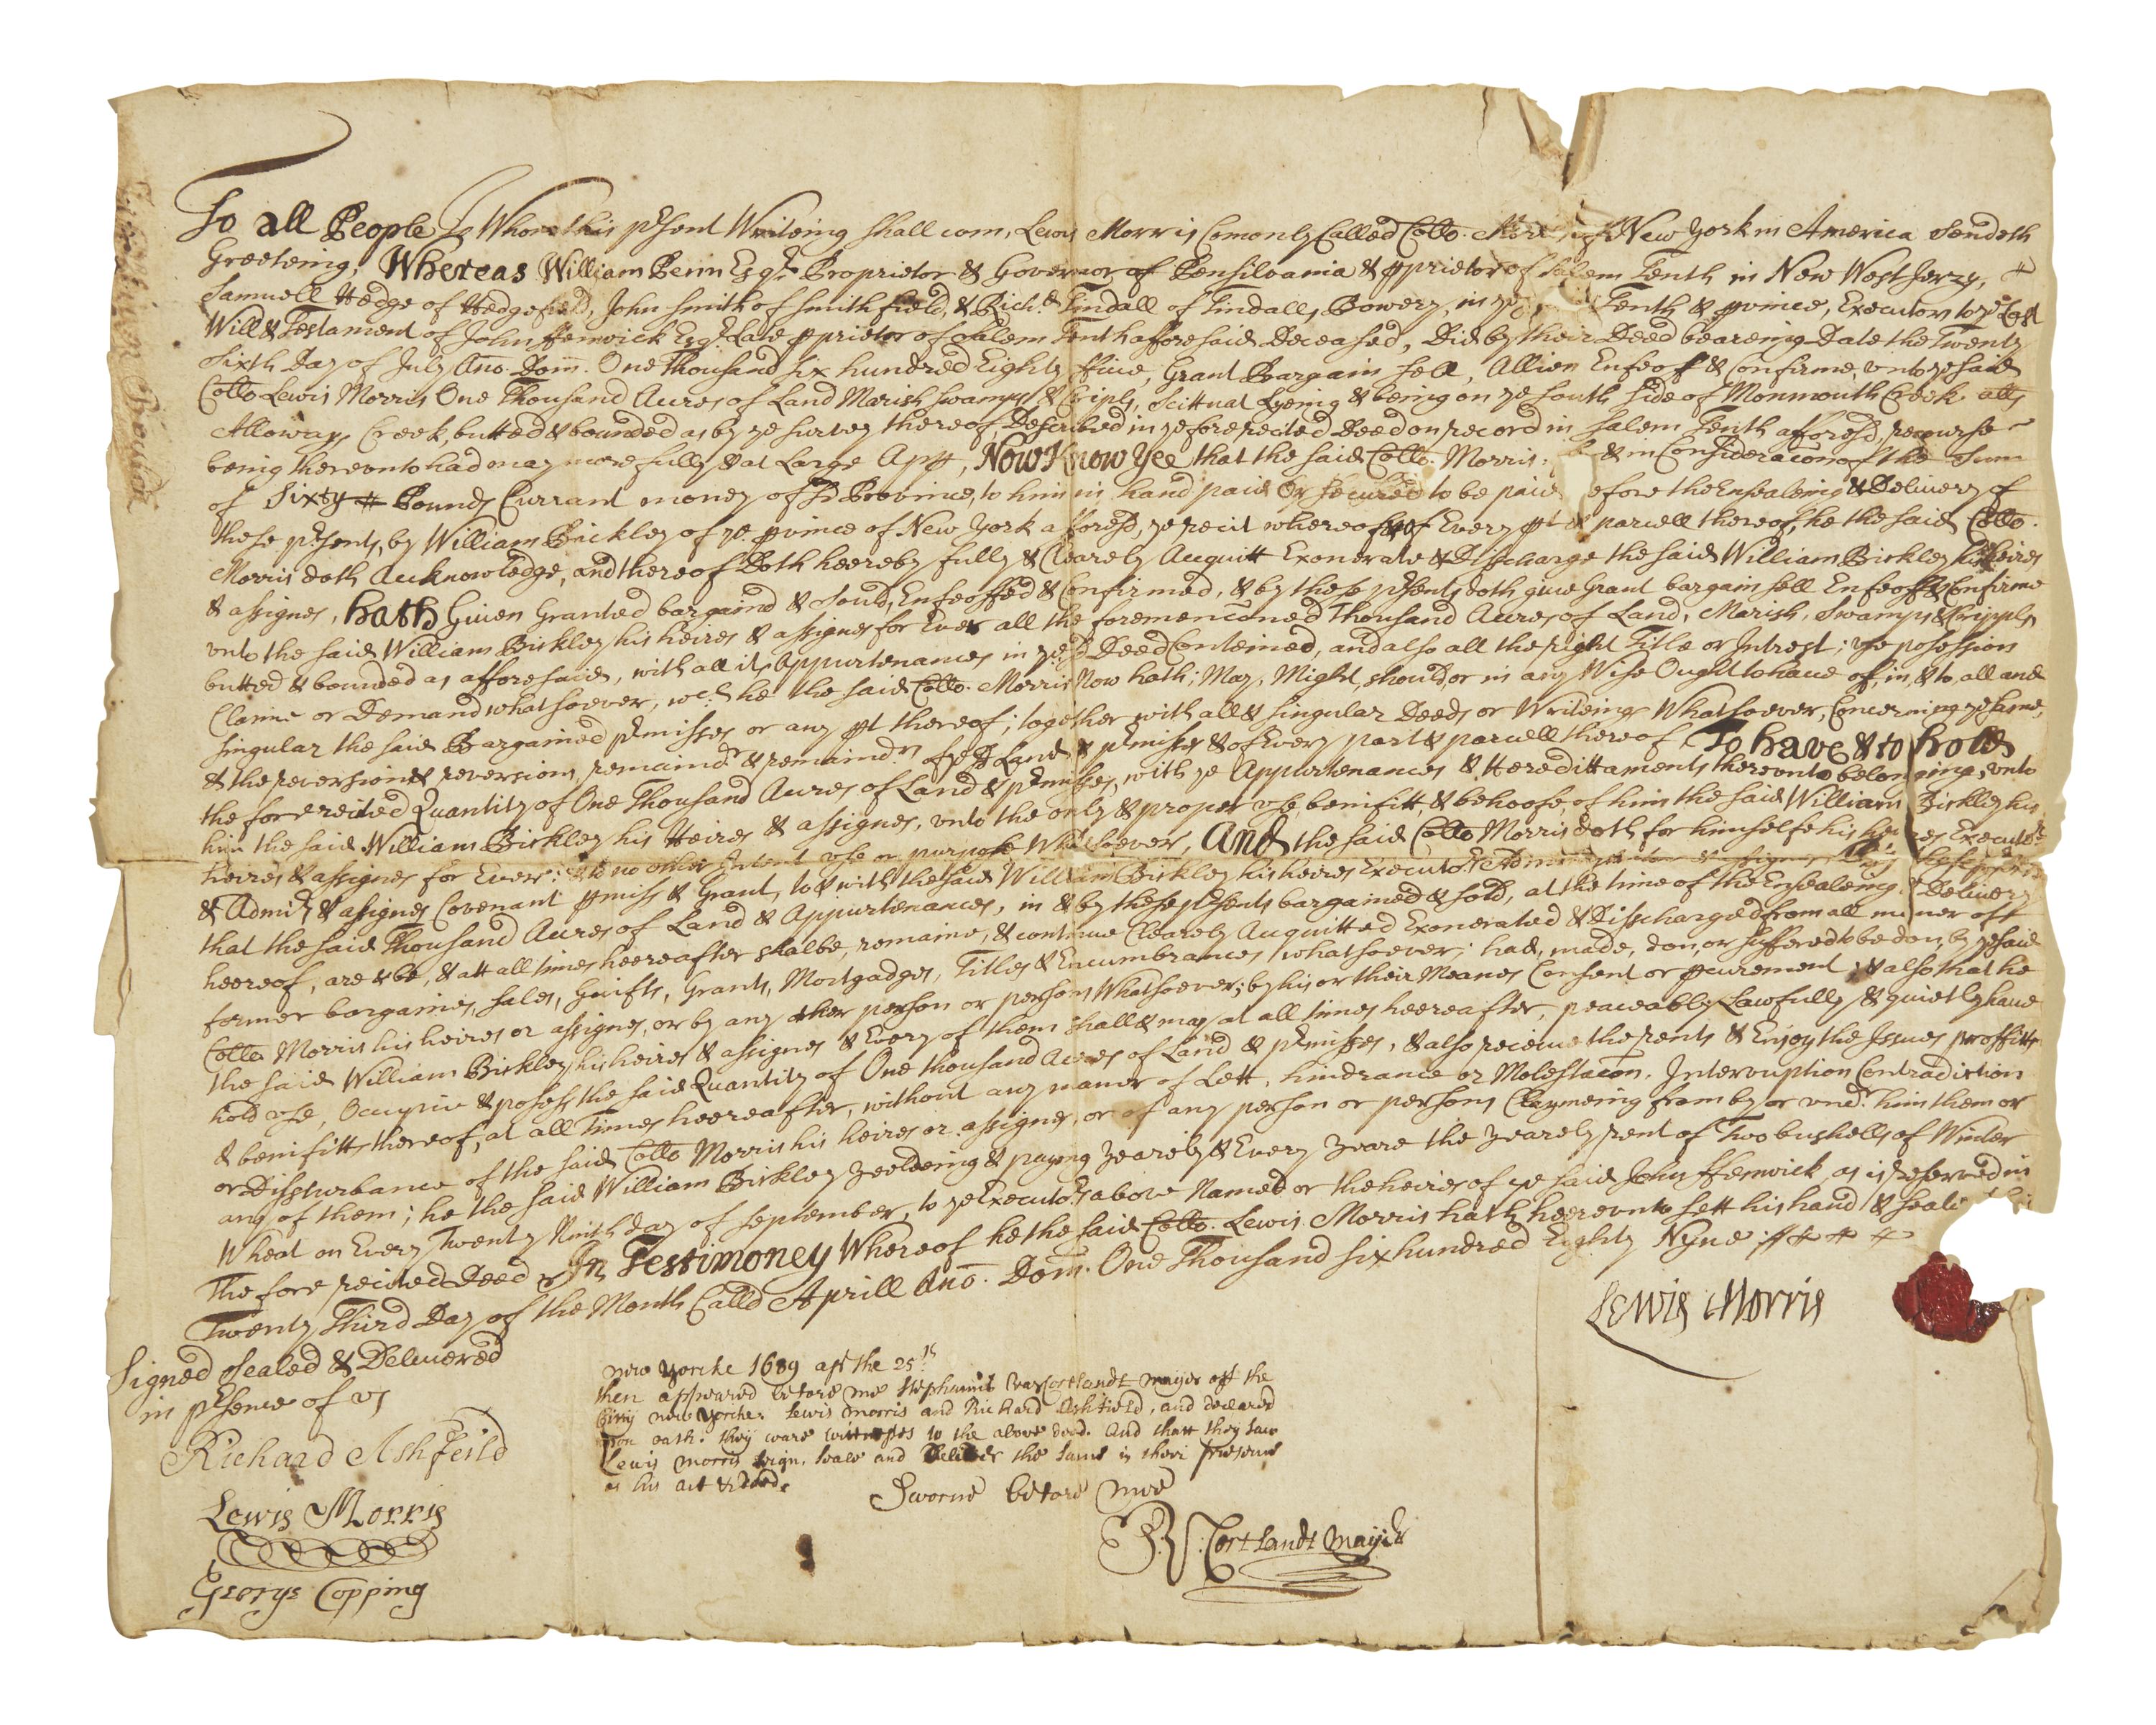 To all People To Whom this pʳsent Writeing shall com, Lewis Morris Comonly Called Collo. of New York in America Sendeth
Greeteing, Whereas William Penn Esqʳ. Proprietor & Governor of Pensilvania & pprietor of Salem Tenth in New West Jerzy, &
Samuell Hedge of Hedgefield, John Smith of Smithfield, & Richᵈ. Tindall of Tindalls Bowery, in yᵉ Tenth & pvince, Executors to yᵉ Last
Will & Testament of John ffenwick Esqʳ Late pprietor of Salem Tenth afforesaid Deceased, Did by their Deed beareing Date the Twenty
Sixth Day of July Ano. Dom. One Thousand six hundred Eighty ffive, Grant Bargain sell, Allien Enfeoff & Confirme, vnto yᵉ said
Collo Lewis Morris One Thousand Acres of Land Marish swamps & Cripls, Scittuat Lyeing & being on ye South side of Monmouth Creek alls
Alloways Creek, butted & bounded as by ye survey thereof Described in ye forerecited Deed on record in Salem Tenth afforesd, recourse
being therevnto had may more fully & at Large Appr, Now Know Yee that the said Collo. Morris, & in Consideracon of the Sum
of Sixty Pounds Currant money of sd Province, to him in hand paid Or secured to be paid efore the Ensealeing & Delivery of
these pʳsents, by William Bickley of ye. pvince of New York afforesd, ye receit whereof & of Every pt & parcell thereof, he the said Collo.
Morris doth Acknowledge, and thereof Doth heereby fully & Clearely Acquitt Exonerate & Disscharge the said William Bickley his heires
& assignes, hath Given Granted bargaind & Sould, Enfeoffed & Confirmed, & by these pʳsents doth give Grant bargain sell Enfeoff & Confirme
vnto the said William Bickley his heires & assignes for Ever all the foremencaned Thousand Acres of Land, Marish, Swamps & Cripls,
butted & bounded as afforesaid, with all its Appurtenances in ye. sd Deed Conteined, and also all the right Title or Intrest; vse posession
Claime or Demand whatsoever, wᶜʰ he the said Collo. Morris Now hath; May, Might, should, or in any Wise Ought to have of, in, & to, all and
singular the said Bargained pʳmisses or any pt thereof; together with all & singular Deeds or Writeings Whatsoever, Concerning ye same,
& the reversion & reversions, remaindʳ & remaindʳˢ of ye sd Land & pʳmises & of Every part & parcell thereof To have & to hold
the fore recited Quantity of One Thousand Acres of Land & pʳmisses, with ye Appurtenances & Heredittaments therevnto belonging, vnto
him the said William Bickley his Heires & assignes, vnto the only & proper vse, benifitt, & behoofe, of him the said William Bickley his
heires & assignes for Ever; & to no other Intent vse or purpose Whatsoever, And the said Collo Morris doth for himselfe his heires Executoʳˢ
& Admiʳˢ & assignes Covenant pmiss & Grant, to & with the said William Bickley his heires Executoʳˢ
that the said Thousand Acres of Land & Appurtenances, in & by these pʳsents bargained & sold, at the time of the Ensealeing & Delivery
heereof, are & be, & att all times heereafter shalbe, remaine, & continue Clearely Acquitted Exonerated & Disscharged from all maner off
former bargaines, sales, Guifts, Grants, Mortgadges, Titles & Encumbrances whatsoever; had, made, don, or suffered to be don, by ye said
Collo Morris his heires or assignes, or by any other person or persons Whatsoever; by his or their Meanes Consent or pcurement; & also that he
the said William Bickley his heires & assignes & Every of them shall & may at all times heereafter, peaceably Lawfully & quietly have
hold vse, Occupiu & posess the said Quantity of One thousand Acres of Land & pʳmisses, & also receive the rents & Enjoy the Issues proffitts
& benifitts thereof, at all Times heereafter, without any maner of Lett, hindrance or Molestacon, Interruption Contradiction
or Dissturbance of the said Collo Morris his heires or assignes, or of any person or persons Claymeing from by or vndʳ. him them or
any of them; he the said William Bickley yeeldeing & paying yearely & Every yeare the yearely rent of Two bushells of Winter
Wheat on Every Twenty Ninth day of September, to ye Executoʳˢ above Named or the heires of ye said John ffenwick, as is reserved in
The fore recited Deed In Testimoney Whereof he the said Collo. Lewis Morris hath heerevnto sett his hand & seale
Twenty Third Day of the Month Calld Aprill Ano. Dom. One Thousand six hundred Eighty Nyne
Lewis Morris
Signed Sealed & Delivered
in pʳsence of vs
Richard Ashfeild
Lewis Morris
George Copping
new Yorcke 1689 apr the 25ᵗʰ
then appeared before me Stephanus van Cortlandt maijor off the
Citty new Yorcke. Lewis morris and Richard Ashfield, and declared
upon oath. they ware wittnesses to the above deed. And thatt they saw
Lewis morris seign. seale and Deliver the same in their presens
as his act & deed.
Sworne before mee
S. V. Cortlandt Maijor